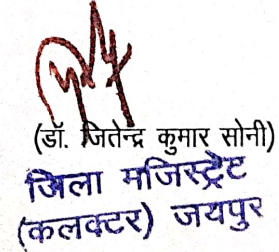 (डॉ. जितेन्द्र कुमार सोनी)
जिला मजिस्ट्रेट
(कलक्टर) जयपुर